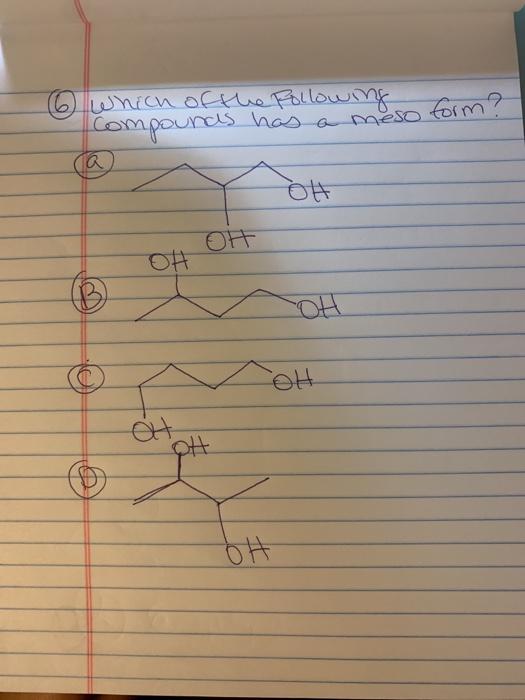 6 which of the Following
Compounds has a meso form?
a
OH
OH
OH
B
OH
C
OH
OH
OH
D
OH